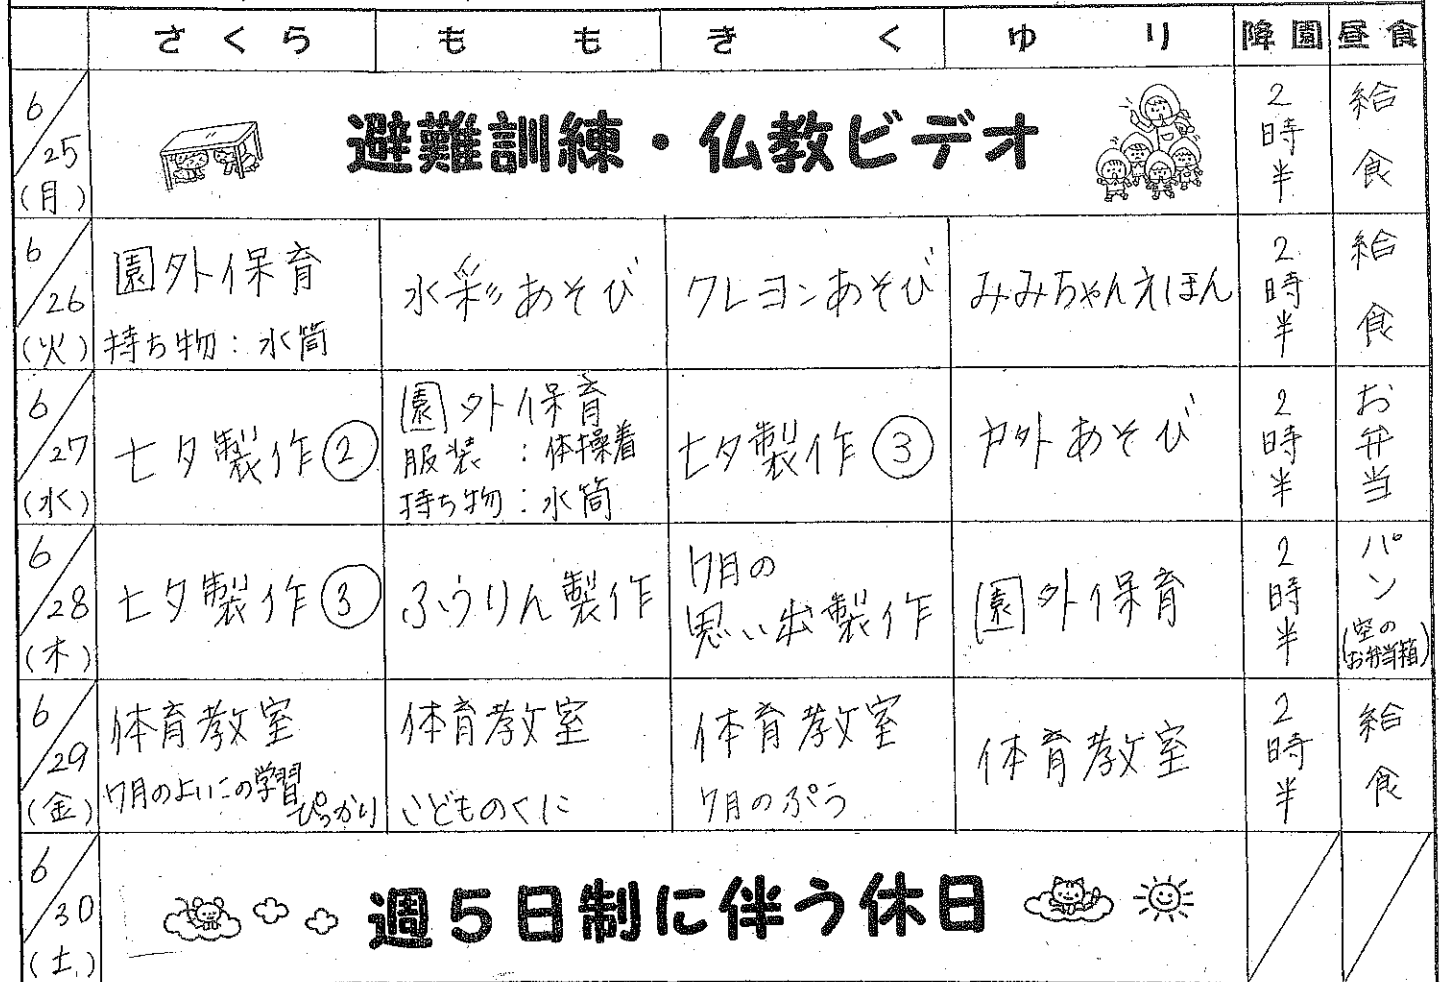 さくら もも きく ゆり 降園 昼食
6/25(月) 避難訓練・仏教ビデオ 2時半 給食
6/26(火)
園外保育
持ち物：水筒
水彩あそび
クレヨンあそび
みみちゃんえほん
2時半
給食
6/27(水)
七夕製作②
園外保育
服装：体操着
持ち物：水筒
七夕製作③
戸外あそび
2時半
お弁当
6/28(木)
七夕製作③
ふうりん製作
7月の
思い出製作
園外保育
2時半
パン
(空の
お弁当箱)
6/29(金)
体育教室
7月のよいこの学習
ぴっかり
体育教室
こどものくに
体育教室
7月のぷう
体育教室
2時半
給食
6/30(土) 週5日制に伴う休日